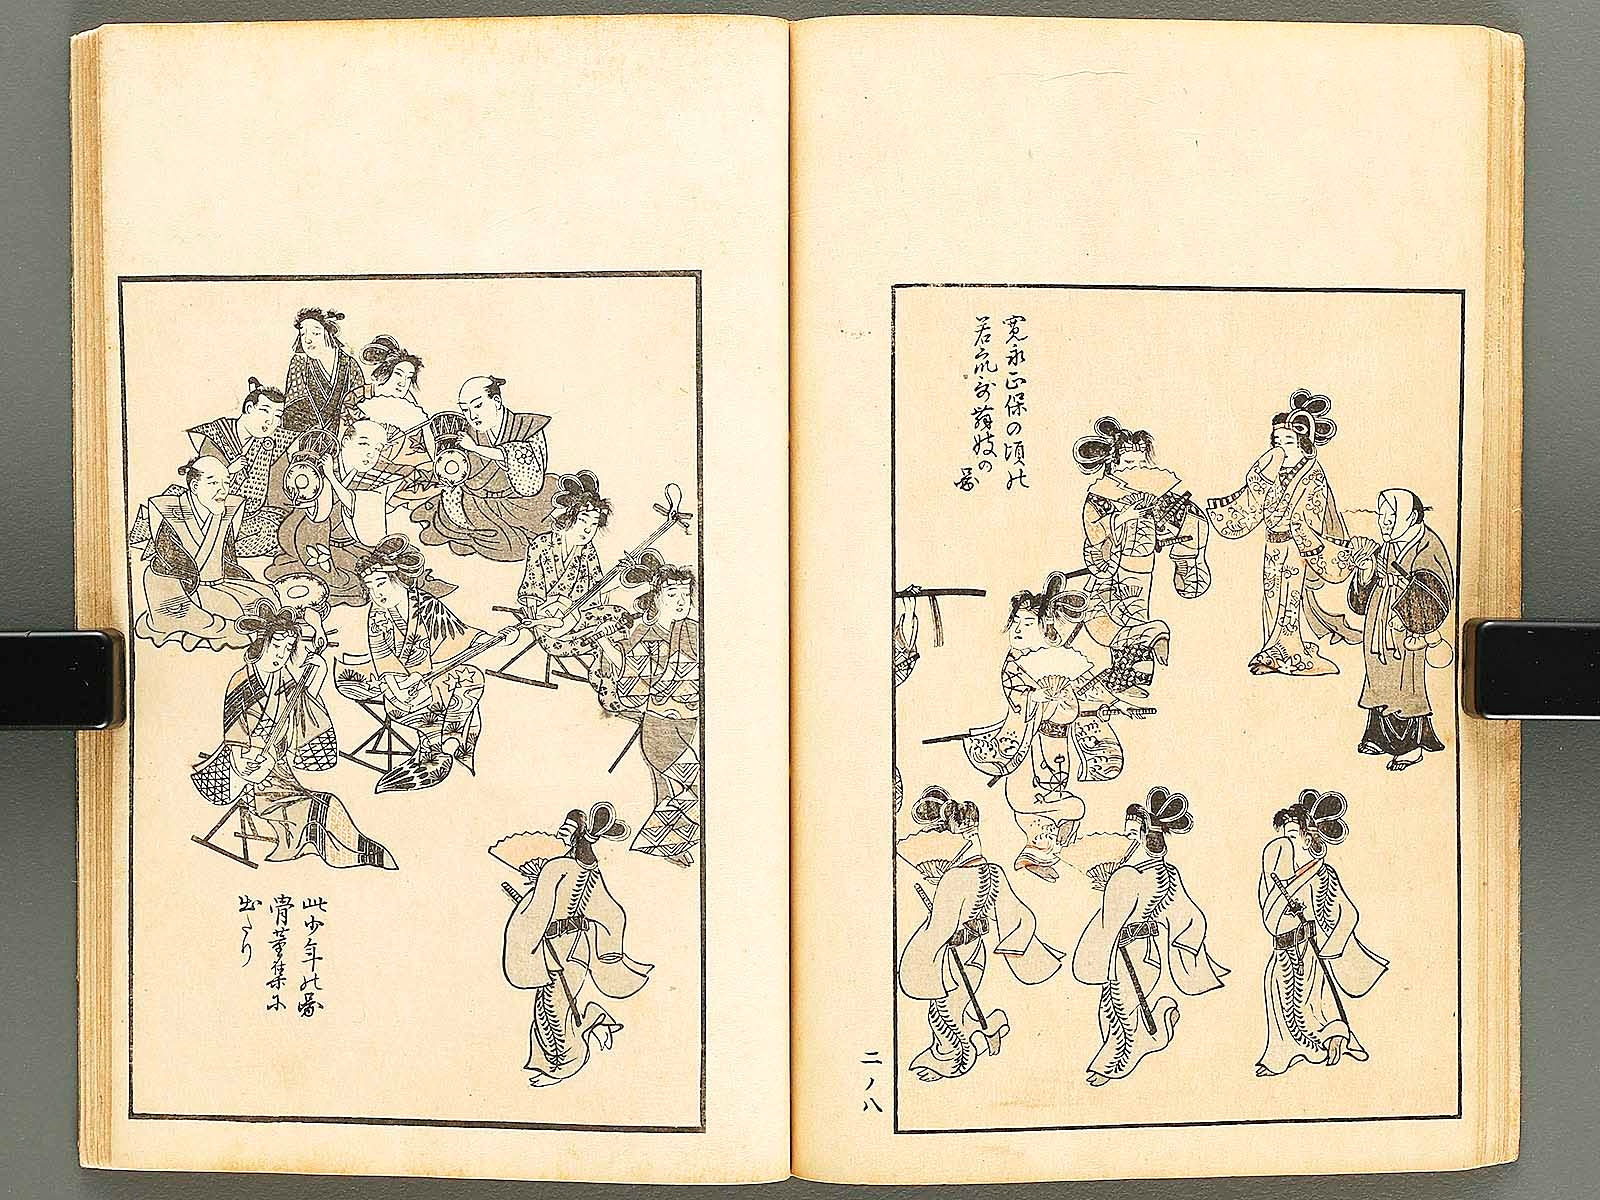 寛永正保の頃の
若衆歌舞妓の
図
二ノ八
此少年の図
骨董集に
出たり